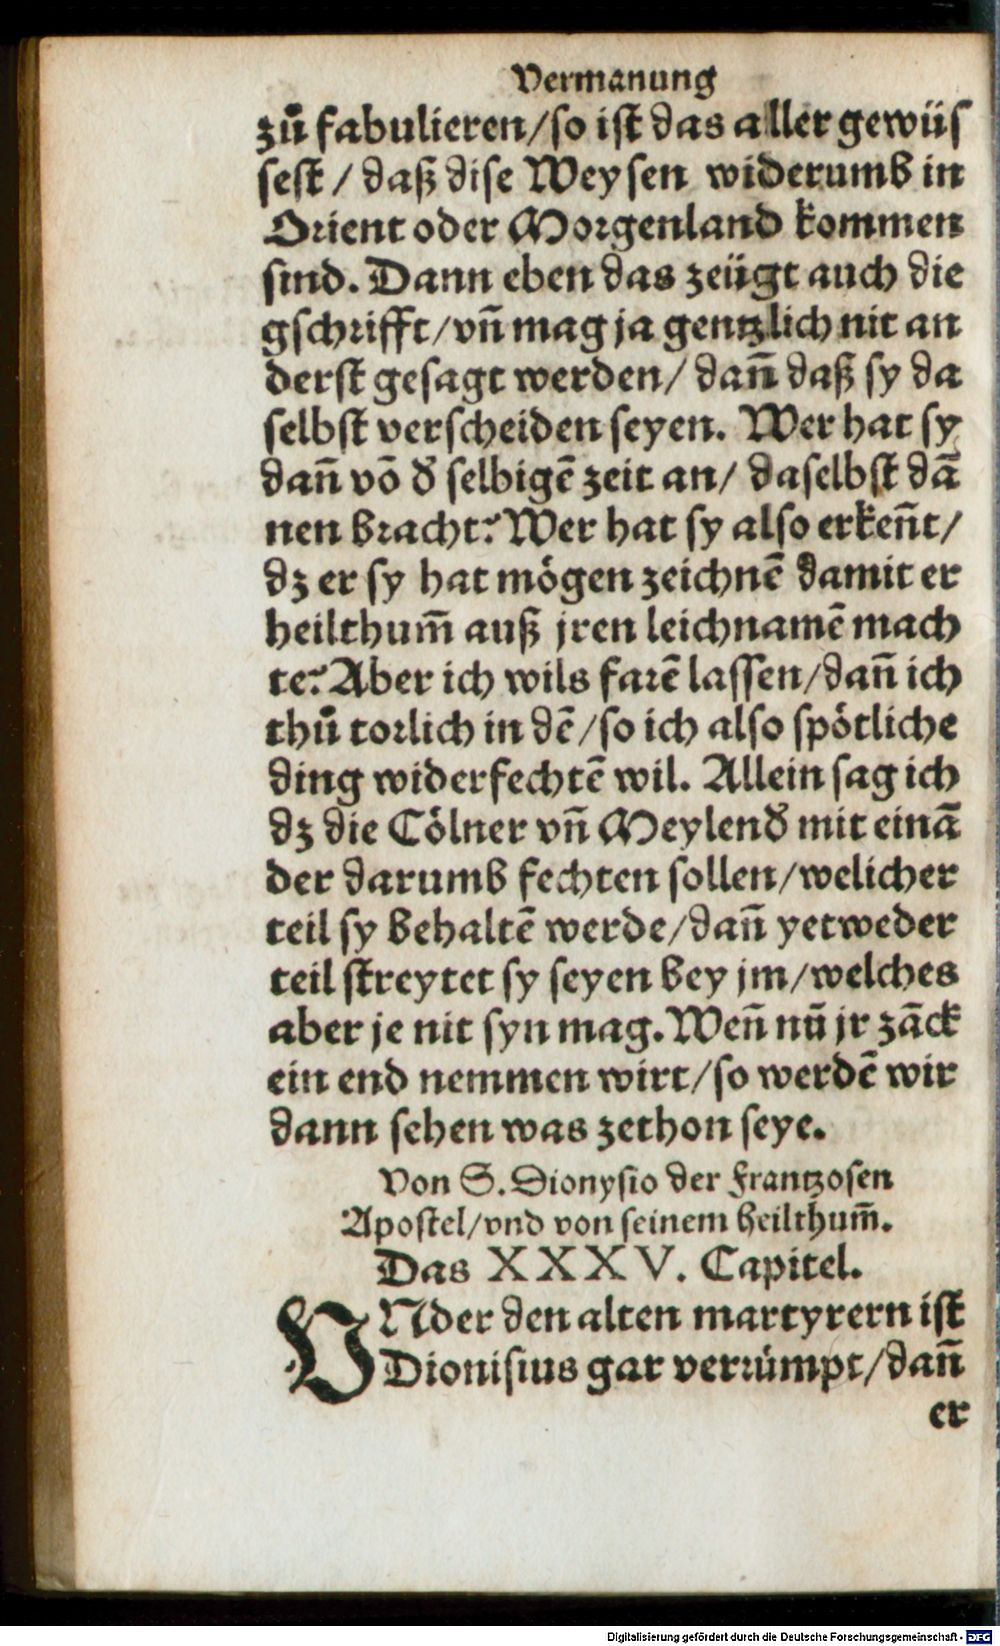 Vermanung
zů fabulieren/so ist das aller gewüs
sest / daß dise Weysen widerumb in
Orient oder Morgenland kommen
sind. Dann eben das zeügt auch die
gschrifft/vñ mag ja gentzlich nit an
derst gesagt werden/ dañ daß sy da
selbst verscheiden seyen. Wer hat sy
dañ võ d̕ selbigẽ zeit an/ daselbst dã
nen bracht? Wer hat sy also erkeñt/
dz er sy hat mögen zeichnẽ damit er
heilthum̃ auß jren leichnamẽ mach
te? Aber ich wils farẽ lassen/dañ ich
thů torlich in dẽ/so ich also spötliche
ding widerfechtẽ wil. Allein sag ich
dz die Cölner vñ Meylend̕ mit einã
der darumb fechten sollen/welicher
teil sy behaltẽ werde/dañ yetweder
teil streytet sy seyen bey jm/welches
aber je nit syn mag. Weñ nũ jr zãck
ein end nemmen wirt/so werdẽ wir
dann sehen was zethon seye.
Von S. Dionysio der Frantzosen
Apostel/vnd von seinem heilthum̃.
Das XXXV. Capitel.
VNder den alten martyrern ist
Dionisius gar verrümpt/dañ
er
Digitalisierung gefördert durch die Deutsche Forschungsgemeinschaft - DFG